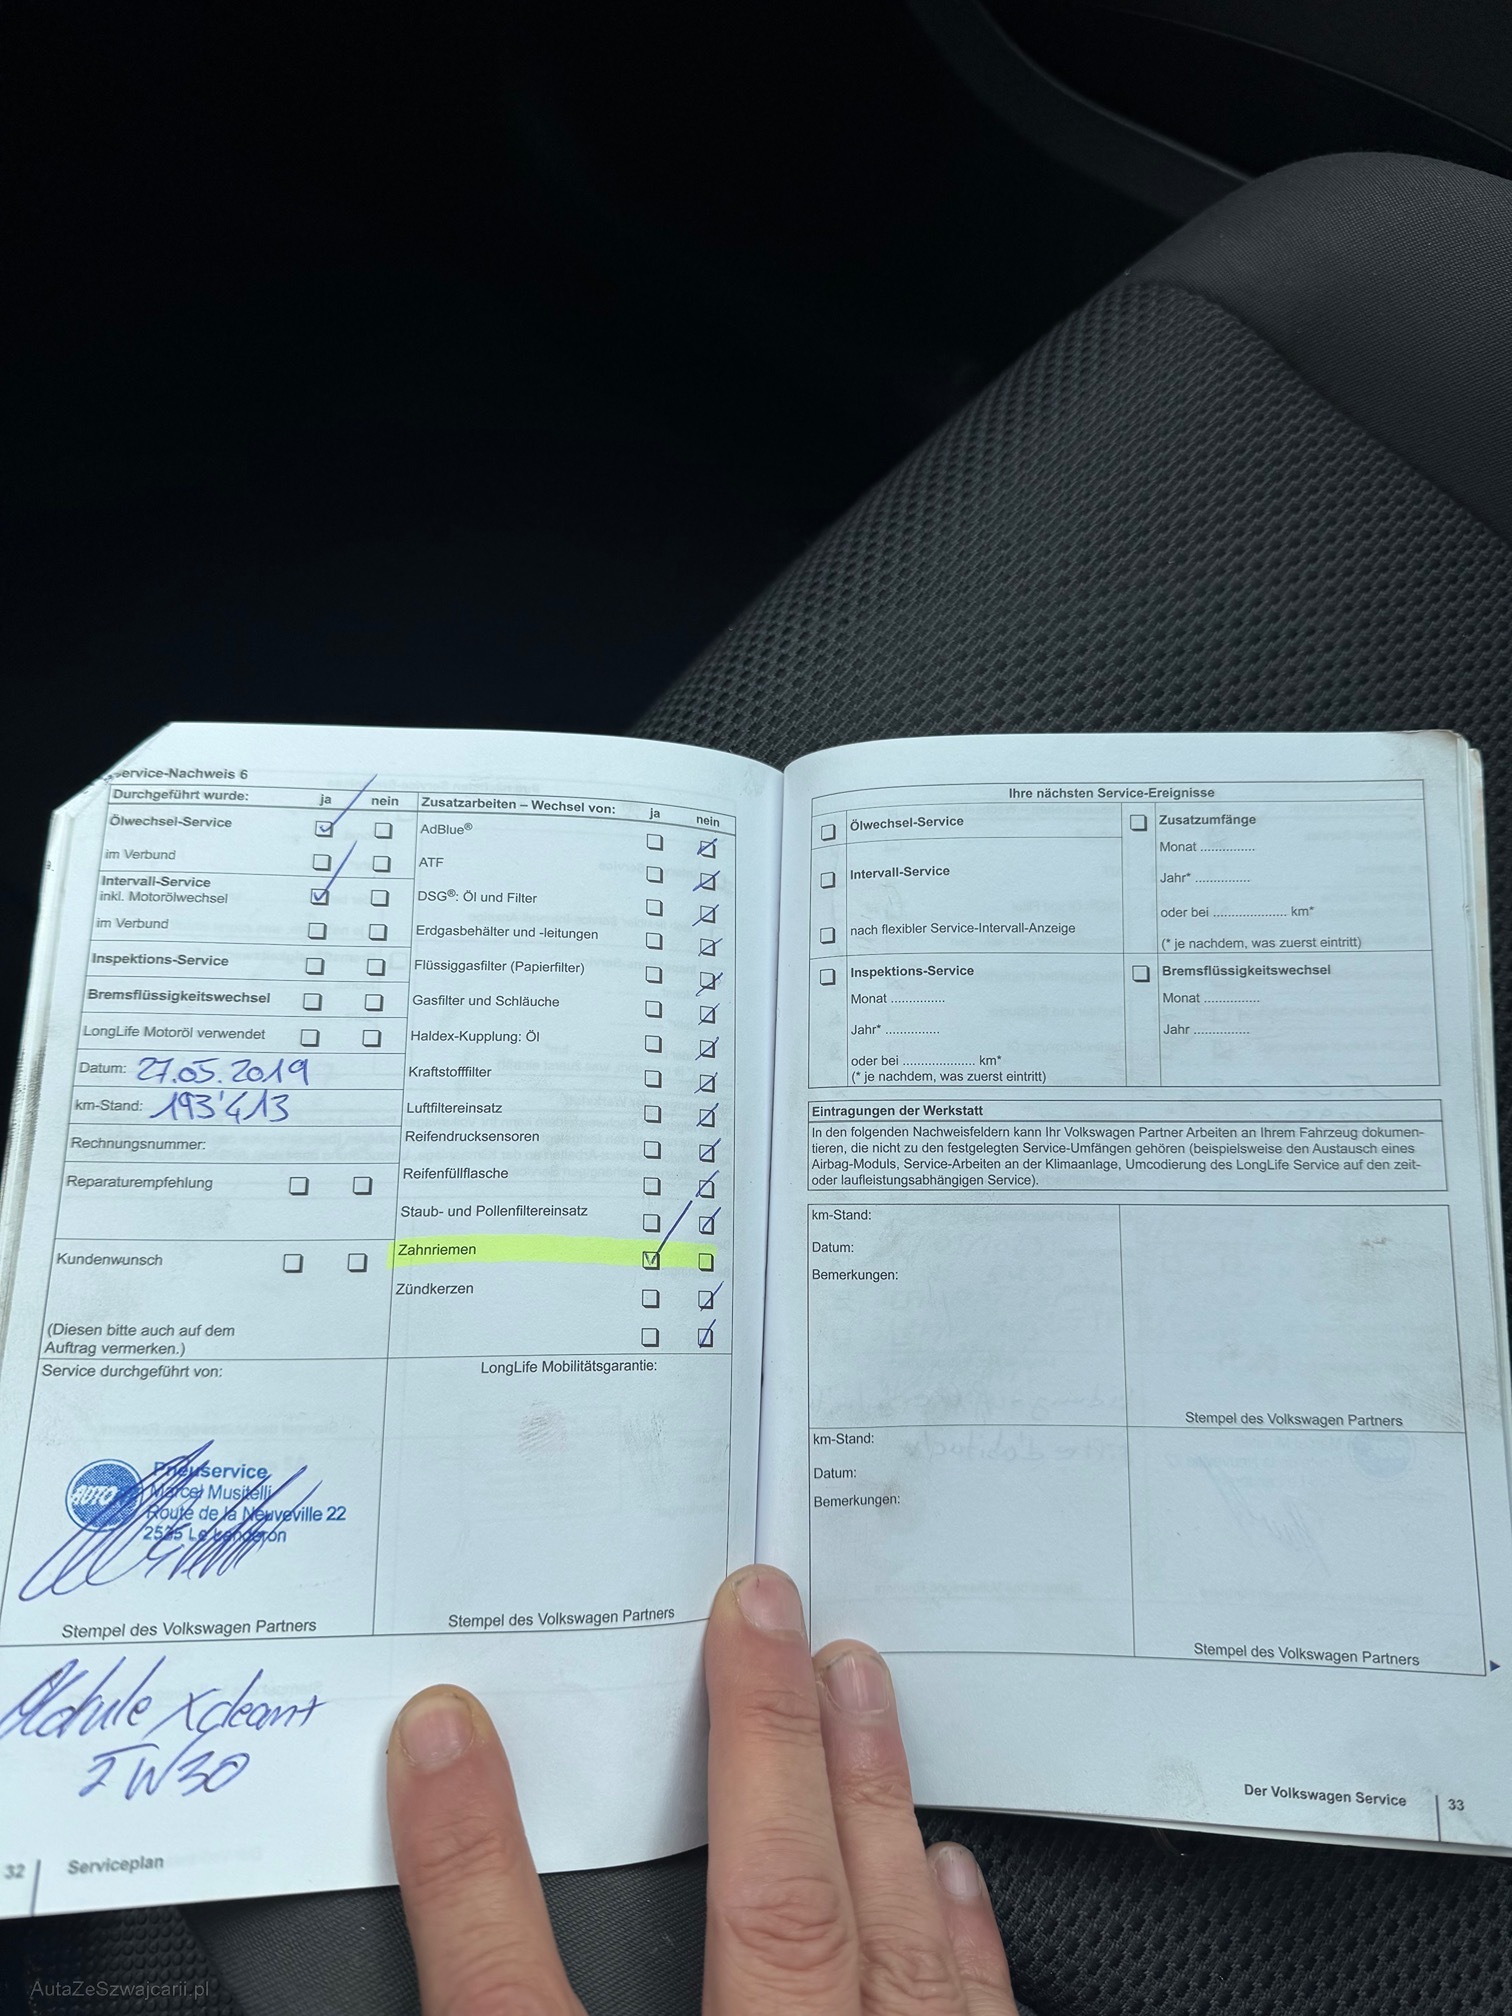 Service-Nachweis 6
Durchgeführt wurde: ja nein
Ölwechsel-Service
im Verbund
Intervall-Service
inkl. Motorölwechsel
im Verbund
Inspektions-Service
Bremsflüssigkeitswechsel
LongLife Motoröl verwendet
Datum: 27.05.2019
km-Stand: 193'413
Rechnungsnummer:
Reparaturempfehlung
Kundenwunsch
(Diesen bitte auch auf dem
Auftrag vermerken.)
Zusatzarbeiten – Wechsel von: ja nein
AdBlue®
ATF
DSG®: Öl und Filter
Erdgasbehälter und -leitungen
Flüssiggasfilter (Papierfilter)
Gasfilter und Schläuche
Haldex-Kupplung: Öl
Kraftstofffilter
Luftfiltereinsatz
Reifendrucksensoren
Reifenfüllflasche
Staub- und Pollenfiltereinsatz
Zahnriemen
Zündkerzen
Service durchgeführt von:
AUTO
Pneuservice
Marcel Musitelli
Route de la Neuveville 22
2525 Le Landeron
Stempel des Volkswagen Partners
LongLife Mobilitätsgarantie:
Stempel des Volkswagen Partners
32 Serviceplan
Ihre nächsten Service-Ereignisse
Ölwechsel-Service
Intervall-Service
nach flexibler Service-Intervall-Anzeige
Inspektions-Service
Monat ...............
Jahr* ...............
oder bei .................... km*
(* je nachdem, was zuerst eintritt)
Zusatzumfänge
Monat ...............
Jahr* ...............
oder bei .................... km*
(* je nachdem, was zuerst eintritt)
Bremsflüssigkeitswechsel
Monat ...............
Jahr ...............
Eintragungen der Werkstatt
In den folgenden Nachweisfeldern kann Ihr Volkswagen Partner Arbeiten an Ihrem Fahrzeug dokumen-
tieren, die nicht zu den festgelegten Service-Umfängen gehören (beispielsweise den Austausch eines
Airbag-Moduls, Service-Arbeiten an der Klimaanlage, Umcodierung des LongLife Service auf den zeit-
oder laufleistungsabhängigen Service).
km-Stand:
Datum:
Bemerkungen:
Stempel des Volkswagen Partners
km-Stand:
Datum:
Bemerkungen:
Stempel des Volkswagen Partners
Der Volkswagen Service 33
AutaZeSzwajcarii.pl